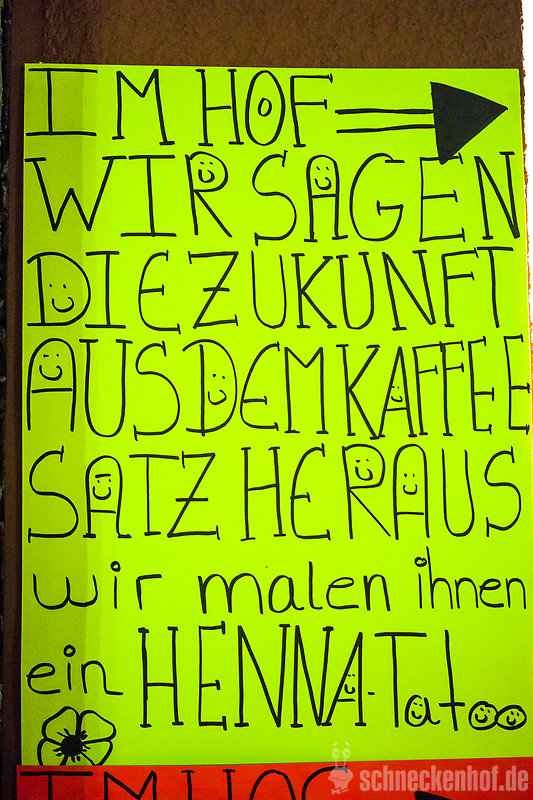 IM HOF
WIR SAGEN
DIE ZUKUNFT
AUS DEM KAFFEE
SATZ HERAUS
wir malen ihnen
ein HENNA-Tatoo
IM HOF
schneckenhof.de